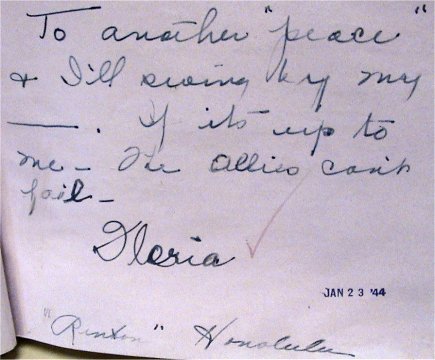 To another "peace"
& I'll swing by my
—. If its up to
me - The allies can't
fail -
Gloria
JAN 23 '44
"Rinton" Honolulu